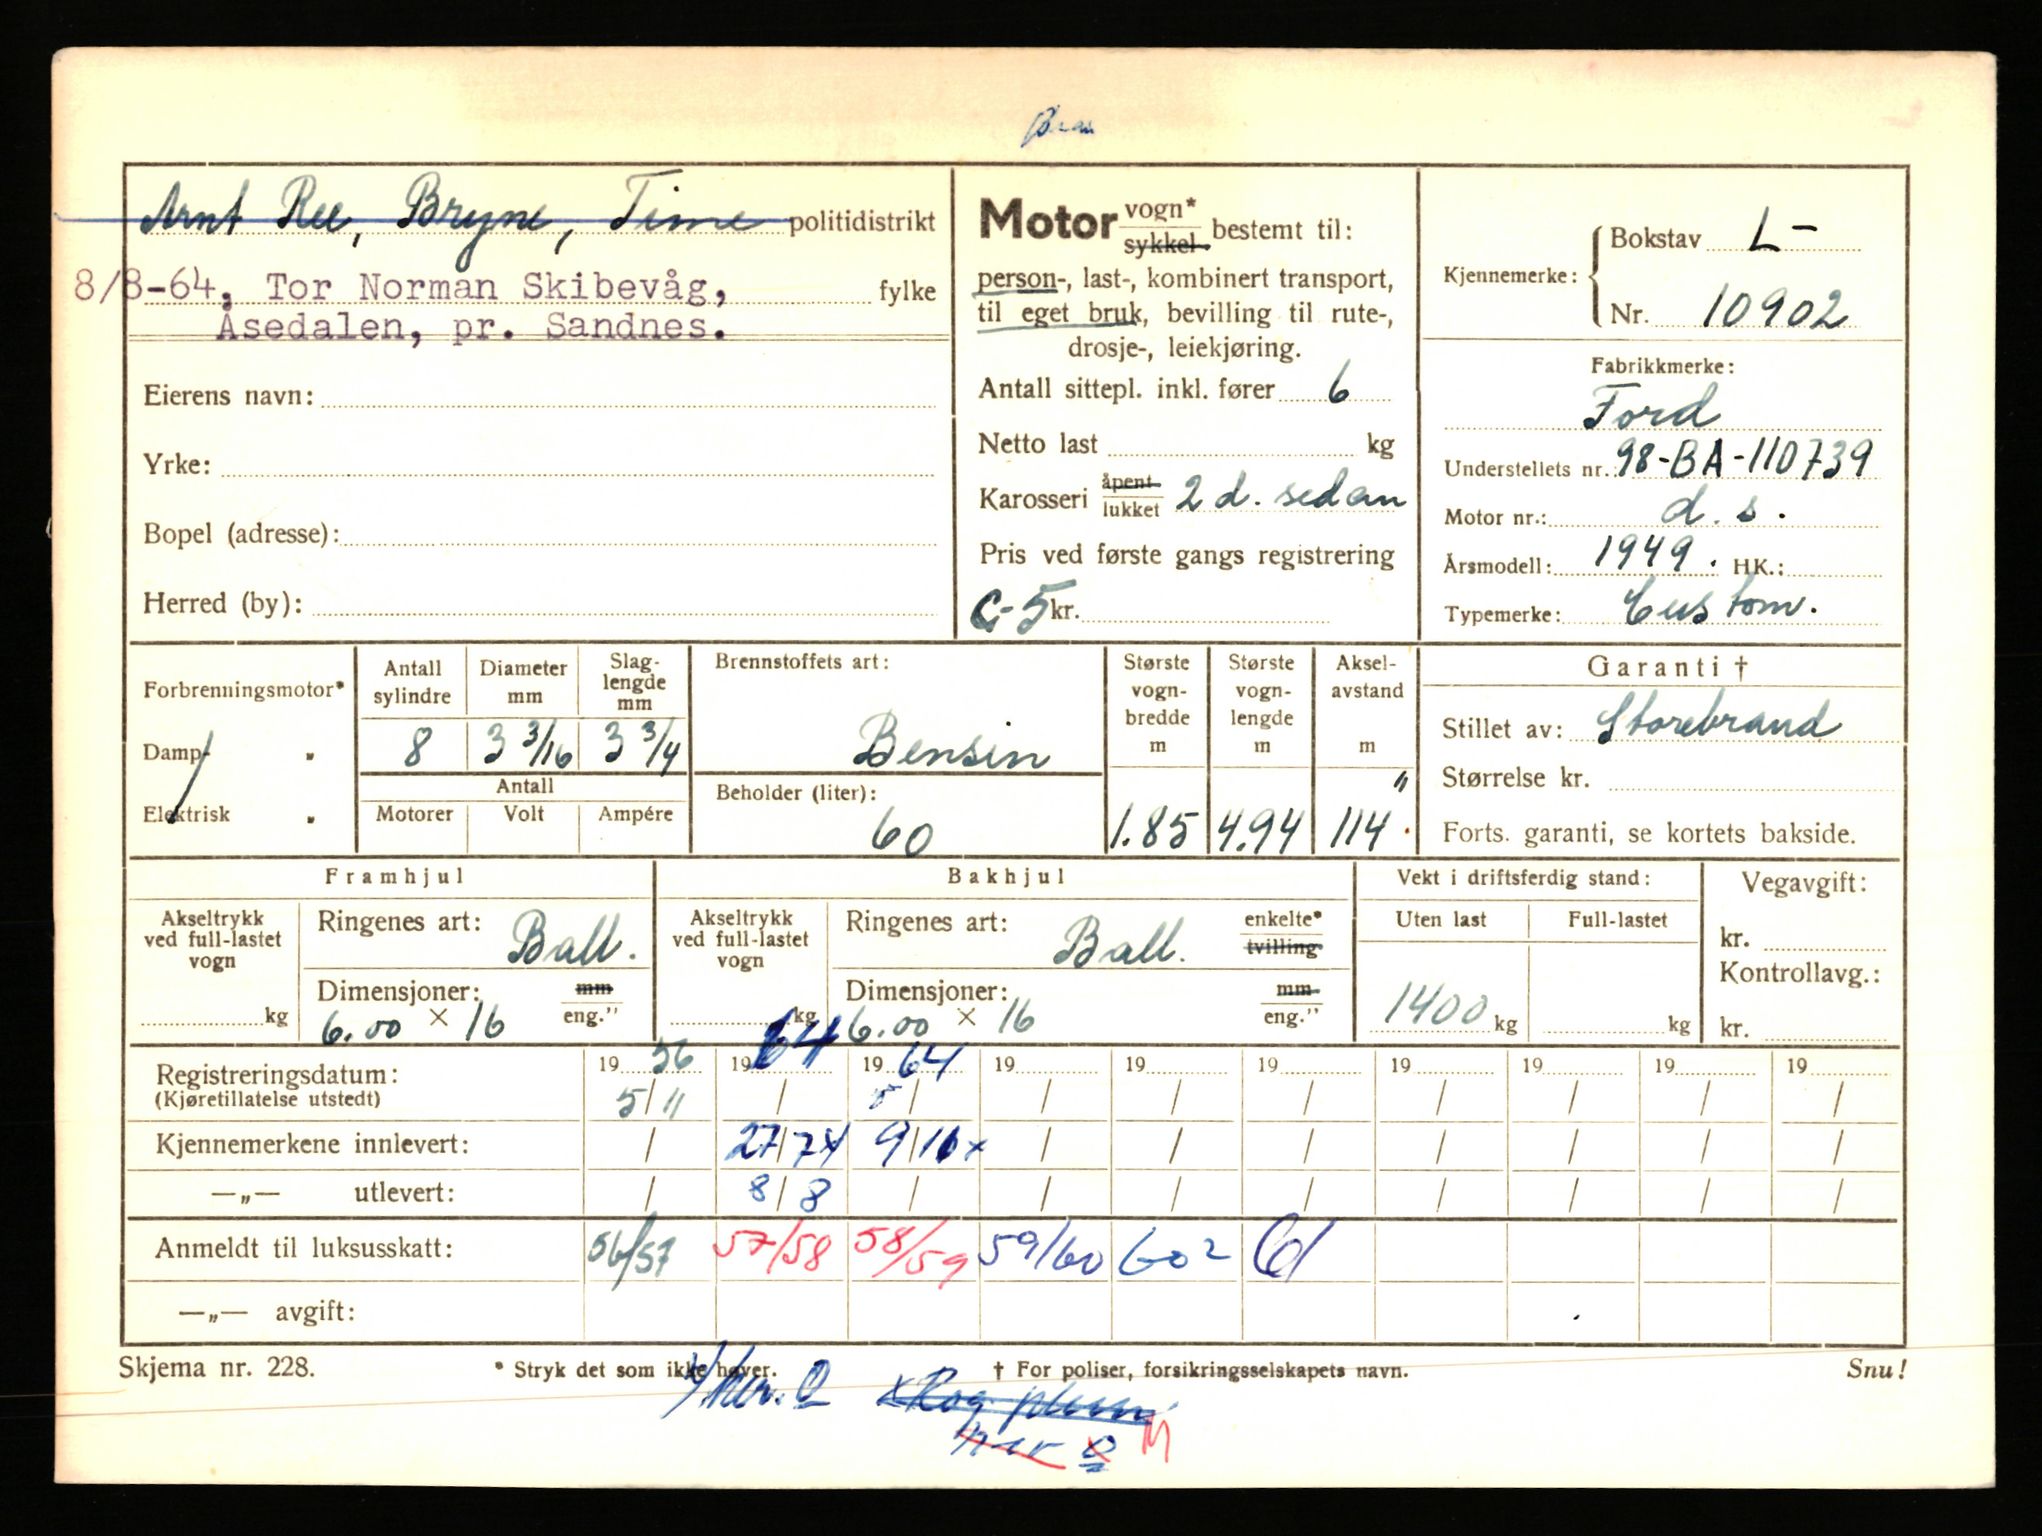 Arnt Ree, Bryne, Time politidistrikt
8/8-64, Tor Norman Skibevåg, fylke
Åsedalen, pr. Sandnes.
Eierens navn:
Yrke:
Bopel (adresse):
Herred (by):
Motor vogn* sykkel bestemt til:
person-, last-, kombinert transport,
til eget bruk, bevilling til rute-,
drosje-, leiekjøring.
Antall sittepl. inkl. fører 6
Netto last kg
Karosseri åpent lukket 2 d. sedan
Pris ved første gangs registrering
C-5 kr.
Kjennemerke:
Bokstav L-
Nr. 10902
Fabrikkmerke:
Ford
Understellets nr.: 98-BA-110739
Motor nr.: d.s.
Årsmodell: 1949. HK.:
Typemerke: Custom.
Forbrenningsmotor*
Damp- "
Elektrisk "
Antall sylindre Diameter mm Slag-lengde mm
8 3 3/16 3 3/4
Antall
Motorer Volt Ampére
Brennstoffets art:
Bensin
Beholder (liter):
60
Største vogn-bredde m Største vogn-lengde m Aksel-avstand m
1.85 4.94 114"
Garanti †
Stillet av: Storebrand
Størrelse kr.
Forts. garanti, se kortets bakside.
Framhjul
Akseltrykk ved full-lastet vogn kg
Ringenes art: Ball.
Dimensjoner: mm eng."
6.00 × 16
Bakhjul
Akseltrykk ved full-lastet vogn kg
Ringenes art: Ball. enkelte* tvilling
Dimensjoner: mm eng."
6.00 × 16
Vekt i driftsferdig stand:
Uten last Full-lastet
1400 kg kg
Vegavgift:
kr.
Kontrollavg.:
kr.
19 56 19 64 19 64 19 19 19 19 19 19 19
Registreringsdatum:
(Kjøretillatelse utstedt) 5/11 / / / / / / / / /
Kjennemerkene innlevert: / 27/7x 9/10x / / / / / / /
—„— utlevert: / 8/8 / / / / / / / /
Anmeldt til luksusskatt: 56/57 57/58 58/59 59/60 60² 61
—„— avgift:
Skjema nr. 228.
* Stryk det som ikke høver.
† For poliser, forsikringsselskapets navn.
Snu!